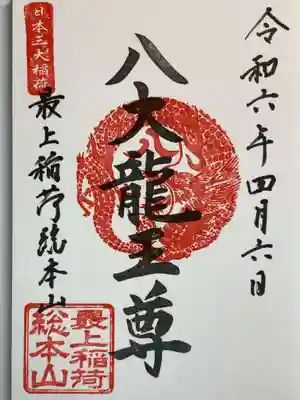 令和六年四月六日
八大龍王尊
日本三大稲荷
最上稲荷総本山
最上稲荷
総本山